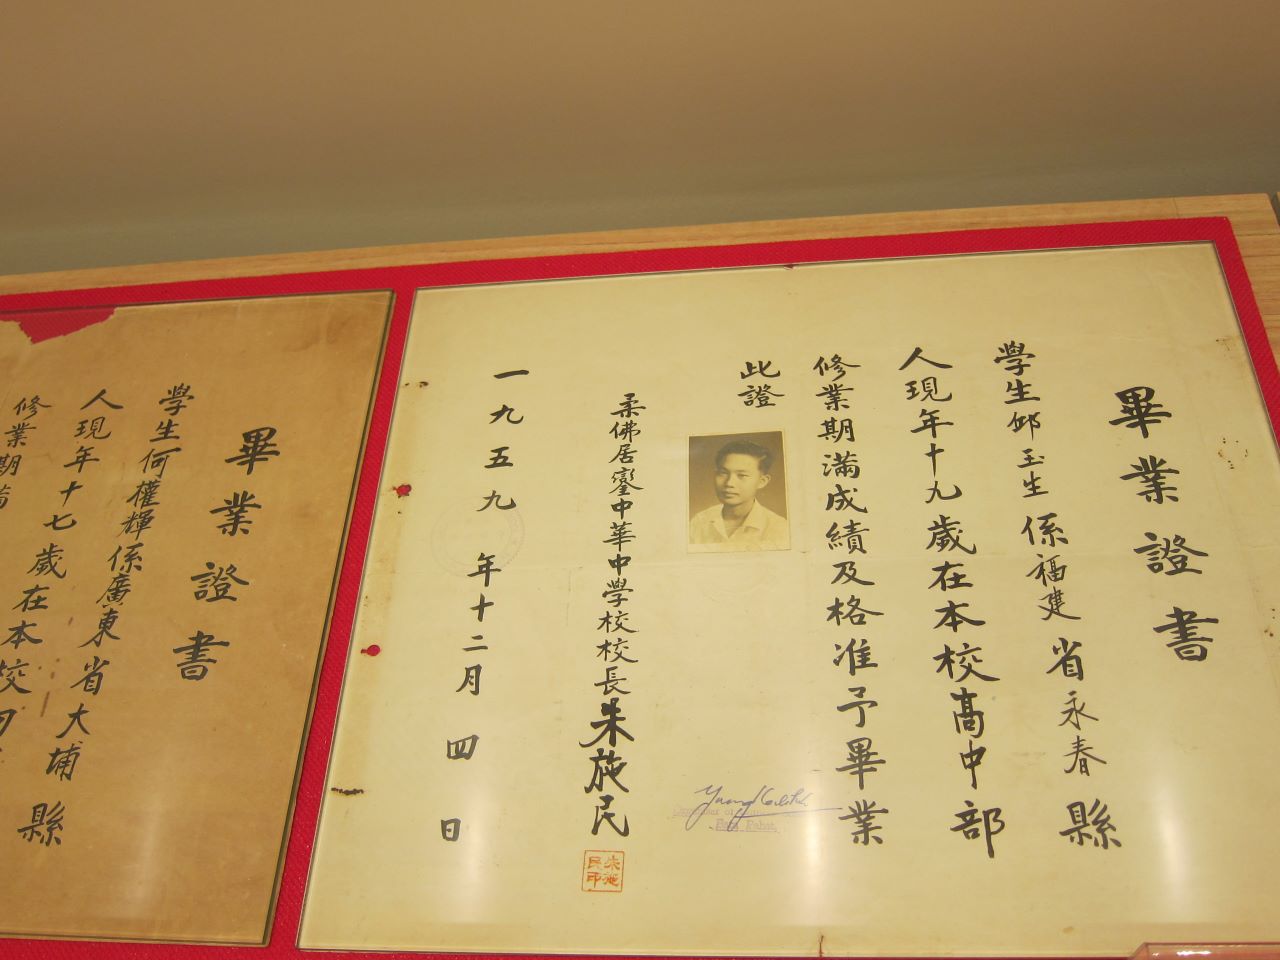 畢業證書
學生邱玉生係福建省永春縣
人現年十九歲在本校高中部
修業期滿成績及格准予畢業
此證
柔佛居鑾中華中學校校長朱施民
朱施民印
一九五九年十二月四日
畢業證書
學生何權輝係廣東省大埔縣
人現年十七歲在本校初
修業期滿